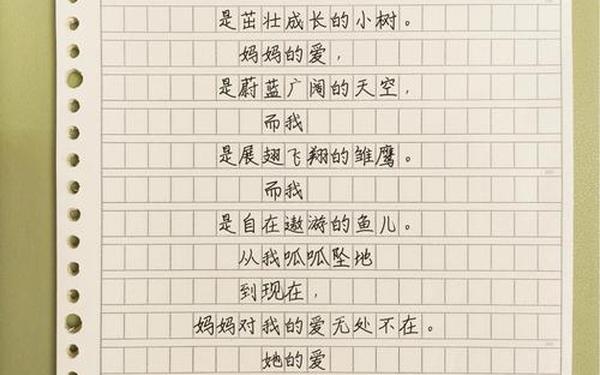 是茁壮成长的小树。
妈妈的爱，
是蔚蓝广阔的天空，
而我
是展翅飞翔的雏鹰。
而我
是自在遨游的鱼儿。
从我呱呱坠地
到现在，
妈妈对我的爱无处不在。
她的爱